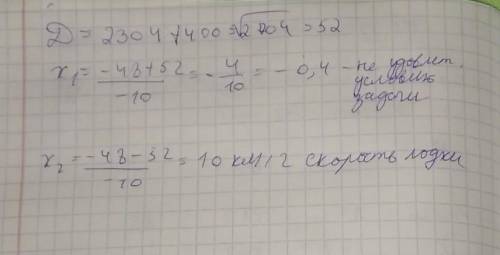 D = 2304 + 400 = √2704 = 52
x₁ = (-48+52)/(-10) = -4/10 = -0,4 - не удовлет.
условию
задачи
x₂ = (-48-52)/(-10) = 10 км/г скорость лодки